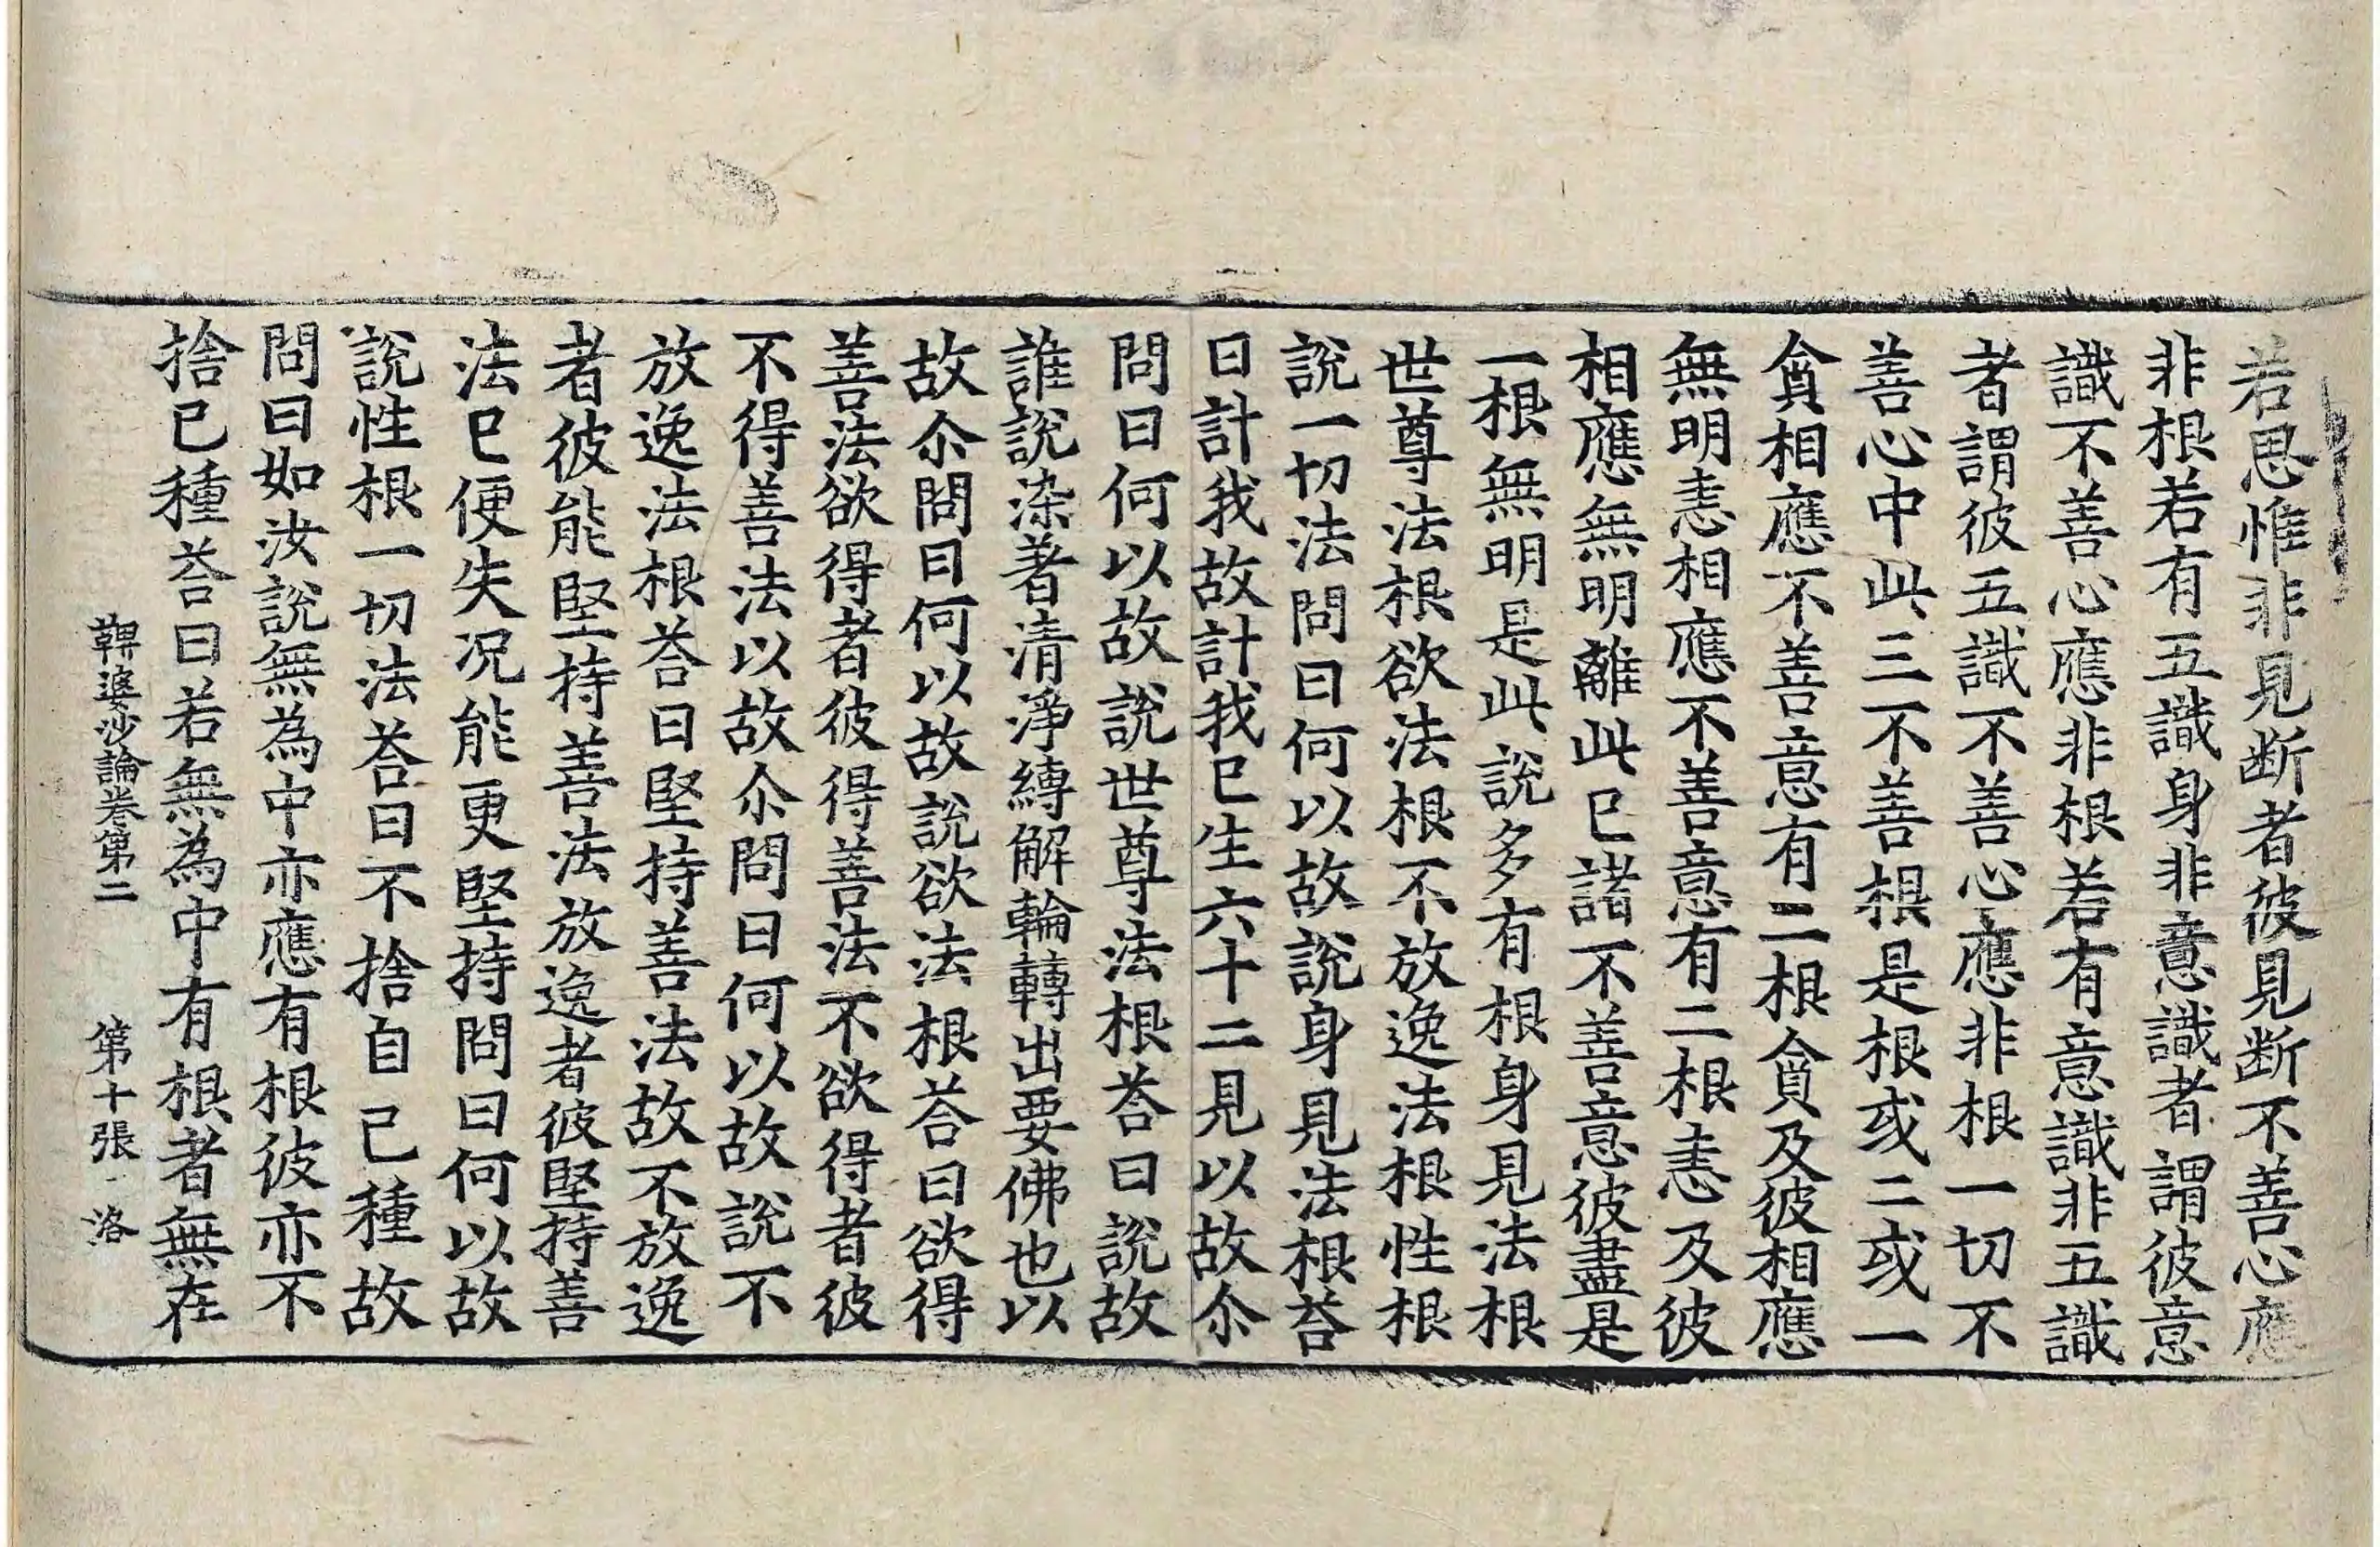 若思惟非見断者彼見断不善心應
非根若有五識身非意識者謂彼意
識不善心應非根若有意識非五識
者謂彼五識不善心應非根一切不
善心中此三不善根是根或二或一
貪相應不善意有二根貪及彼相應
無明恚相應不善意有二根恚及彼
相應無明離此已諸不善意彼盡是
一根無明是此說多有根身見法根
世尊法根欲法根不放逸法根性根
說一切法問曰何以故說身見法根荅
曰計我故計我已生六十二見以故尒
問曰何以故說世尊法根荅曰說故
誰說染著清淨縛解輪轉出要佛也以
故尒問曰何以故說欲法根荅曰欲得
善法欲得者彼得善法不欲得者彼
不得善法以故尒問曰何以故說不
放逸法根荅曰堅持善法故不放逸
者彼能堅持善法放逸者彼堅持善
法已便失况能更堅持問曰何以故
說性根一切法荅曰不捨自己種故
問曰如汝說無為中亦應有根彼亦不
捨已種荅曰若無為中有根者無在
鞞婆沙論卷第二 第十張 洛